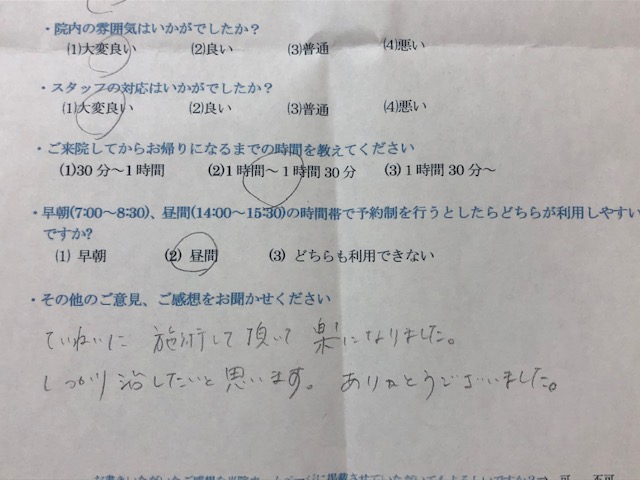 ・院内の雰囲気はいかがでしたか？
(1)大変良い (2)良い (3)普通 (4)悪い
・スタッフの対応はいかがでしたか？
(1)大変良い (2)良い (3)普通 (4)悪い
・ご来院してからお帰りになるまでの時間を教えてください
(1)30分～1時間 (2)1時間～1時間30分 (3)1時間30分～
・早朝(7:00～8:30)、昼間(14:00～15:30)の時間帯で予約制を行うとしたらどちらが利用しやすい
ですか?
(1) 早朝 (2) 昼間 (3) どちらも利用できない
・その他のご意見、ご感想をお聞かせください
ていねいに 施術して頂いて 楽になりました。
しっかり治したいと思います。ありがとうございました。
お書きいただいたご感想を当院ホームページに掲載させていただいてもよろしいですか？⇒ 可 不可